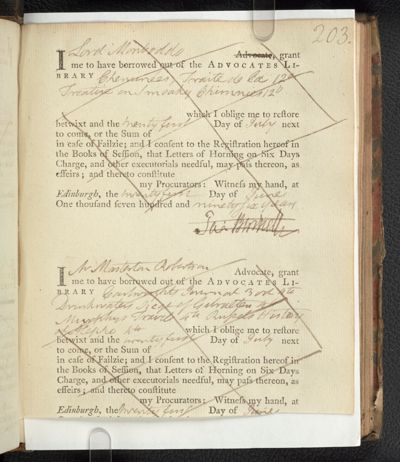 203.
I Lord Monboddo Advocate, grant
me to have borrowed out of the ADVOCATES LI-
BRARY Cheminées, Traité de la 12º
Treatise on Smoaky Chimnies 12º
which I oblige me to restore
betwixt and the twenty first Day of July next
to come, or the Sum of
in case of Failzie; and I consent to the Registration hereof in
the Books of Session, that Letters of Horning on Six Days
Charge, and other executorials needful, may pass thereon, as
effeirs; and thereto constitute
my Procurators: Witness my hand, at
Edinburgh, the twenty first Day of June
One thousand seven hundred and ninety six years
I Mr Robertson Advocate, grant
me to have borrowed out of the ADVOCATES LI-
BRARY Cartwright's Journal 3 vol 4to
Drinkwater's Siege of Gibraltar
Murphy's Travels 4to History
which I oblige me to restore
betwixt and the twenty first Day of July next
to come, or the Sum of
in case of Failzie; and I consent to the Registration hereof in
the Books of Session, that Letters of Horning on Six Days
Charge, and other executorials needful, may pass thereon, as
effeirs; and thereto constitute
my Procurators: Witness my hand, at
Edinburgh, the twenty first Day of June